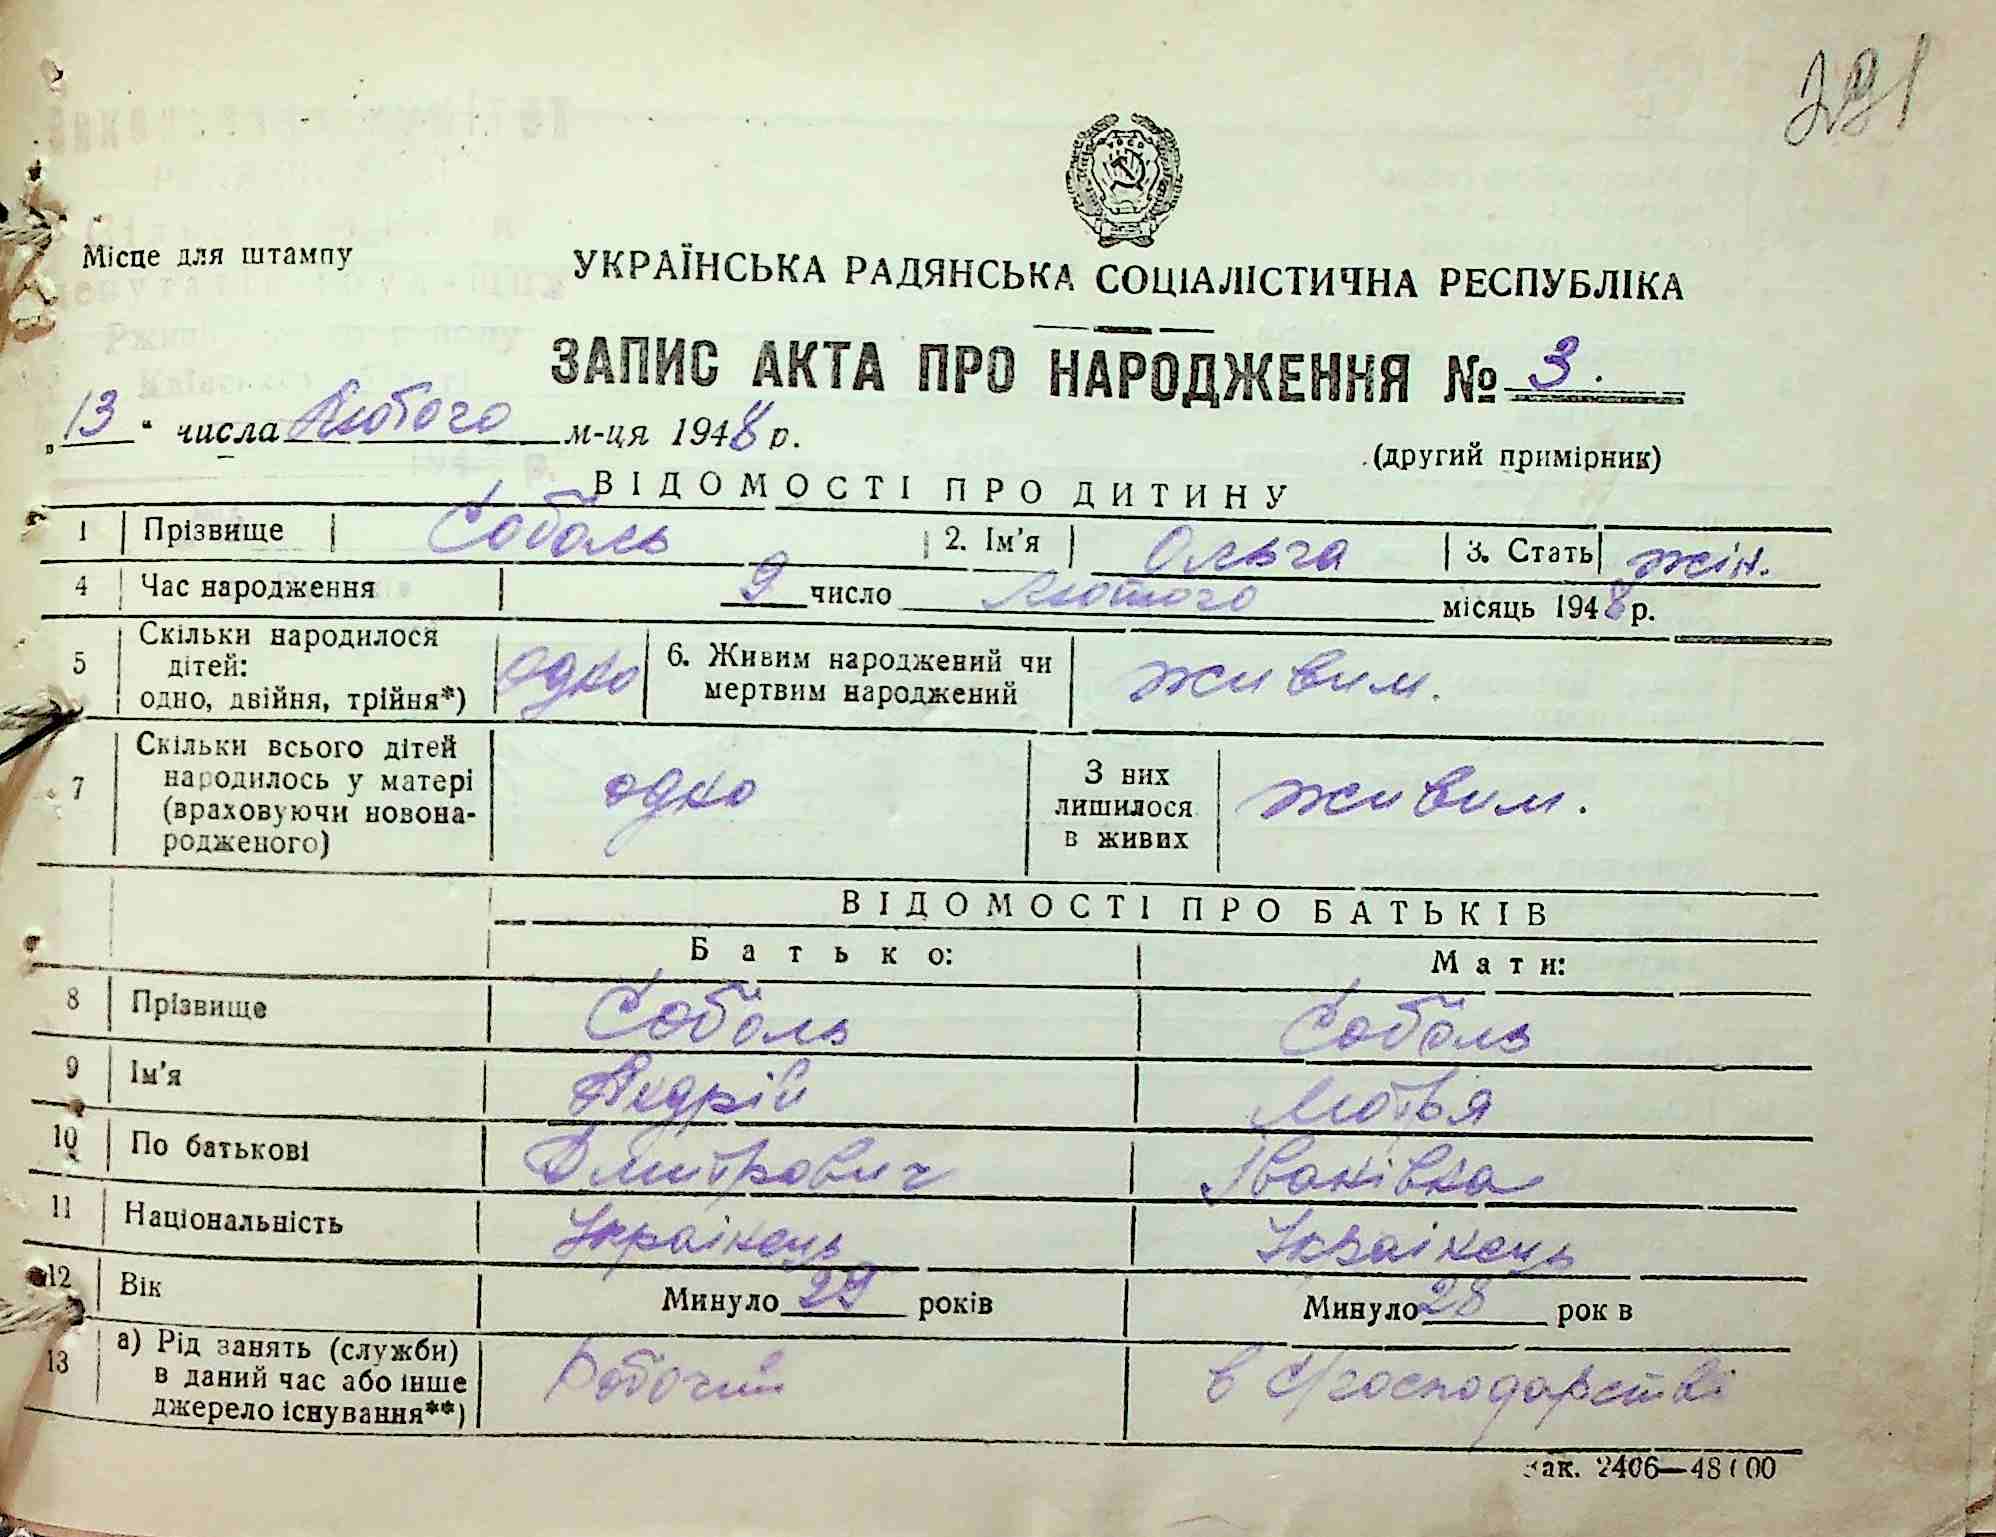 291
Місце для штампу
УКРАЇНСЬКА РАДЯНСЬКА СОЦІАЛІСТИЧНА РЕСПУБЛІКА
ЗАПИС АКТА ПРО НАРОДЖЕННЯ № 3.
„13“ числа Лютого м-ця 1948 р.
(другий примірник)
ВІДОМОСТІ ПРО ДИТИНУ
1 Прізвище Соболь 2. Ім'я Ольга 3. Стать жін.
4 Час народження 9 число Лютого місяць 1948 р.
5 Скільки народилося дітей: одно, двійня, трійня*) одно 6. Живим народжений чи мертвим народжений живим.
7 Скільки всього дітей народилось у матері (враховуючи новонародженого) одно З них лишилося в живих живим.
ВІДОМОСТІ ПРО БАТЬКІВ
Батько: Мати:
8 Прізвище Соболь Соболь
9 Ім'я Андрій Мотья
10 По батькові Дмитрович Іванівна
11 Національність Українець Українець
12 Вік Минуло 29 років Минуло 28 рок в
13 а) Рід занять (служби) в даний час або інше джерело існування**) Робочий в с/господарстві
зак. 2406—48 000